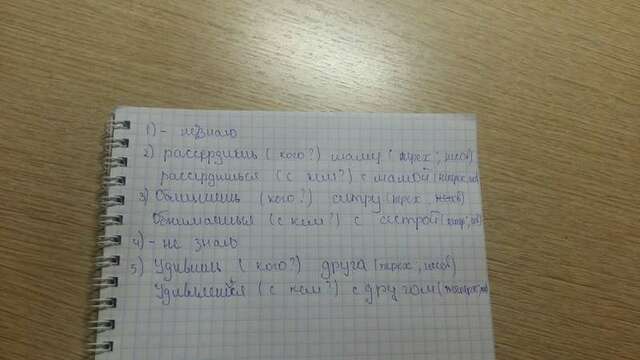 1) - не знаю
2) рассердишь (кого?) маму (перех, несов)
рассердишься (с кем?) с мамой (неперех, сов)
3) (кого?) сестру (перех, несов)
Обнимаешься (с кем?) с сестрой (непер, сов)
4) - не знаю
5) Удивишь (кого?) друга (перех, несов)
Удивляешься (с кем?) с другом (неперех, сов)